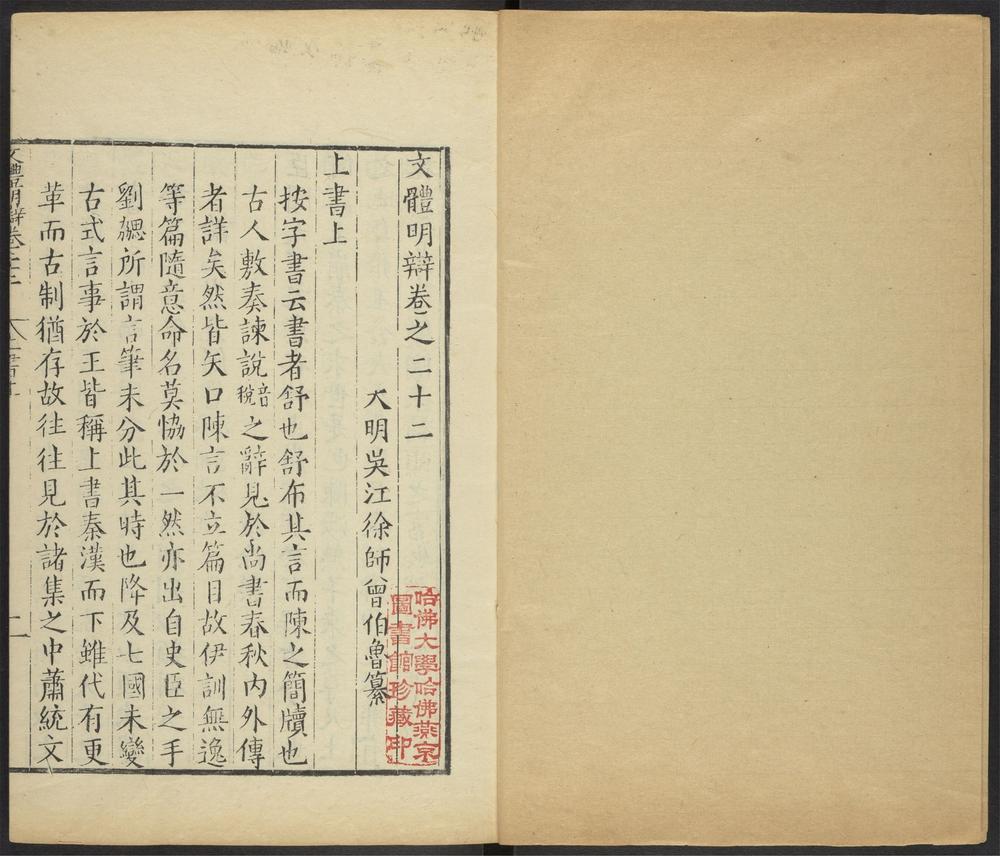 文體明辯卷之二十二
大明吳江徐師曾伯魯纂
上書上
按字書云書者舒也舒布其言而陳之簡牘也
古人敷奏諫說音稅之辭見於尚書春秋內外傳
者詳矣然皆矢口陳言不立篇目故伊訓無逸
等篇隨意命名莫恊於一然亦出自史臣之手
劉勰所謂言筆未分此其時也降及七國未變
古式言事於王皆稱上書秦漢而下雖代有更
革而古制猶存故往往見於諸集之中蕭統文
文體明辯卷二十二
哈佛大學哈佛燕京
圖書館珍藏印